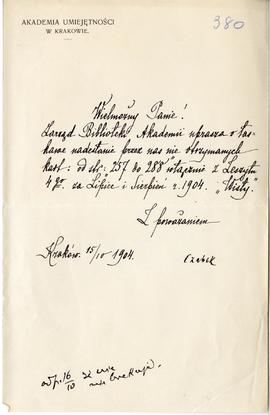 AKADEMIA UMIEJĘTNOŚCI
W KRAKOWIE.
380
Wielmożny Panie!
Zarząd Biblioteki Akademii uprasza o łas-
kawe nadesłanie przez nas nie otrzymanych
kart: od str: 257 do 288 włącznie z Zeszytu
4 go. za Lipiec i Sierpień r. 1904. „Wisły".
Z poważaniem
Kraków. 15/IV 1904.
Czubek
odp. 16/IV że nie